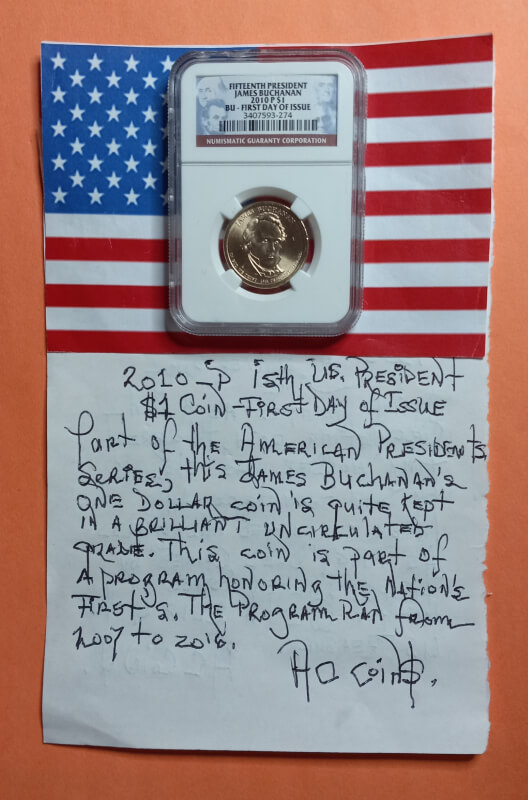 FIFTEENTH PRESIDENT
JAMES BUCHANAN
2010 P $1
BU - FIRST DAY OF ISSUE
3407593-274
NUMISMATIC GUARANTY CORPORATION
JAMES BUCHANAN
2010-P 15th US. PRESIDENT
$1 COIN-FIRST DAY of ISSUE
Part of the AMERICAN PRESIDENTS
SERIES, this JAMES BUCHANAN'S
ONE DOLLAR COIN is quite kept
IN A BRILLIANT UNCIRCULATED
GRADE. This coin is part of
A program honoring the Nation's
First's. The Program RAN from
2007 to 2016.
AC Coin$.